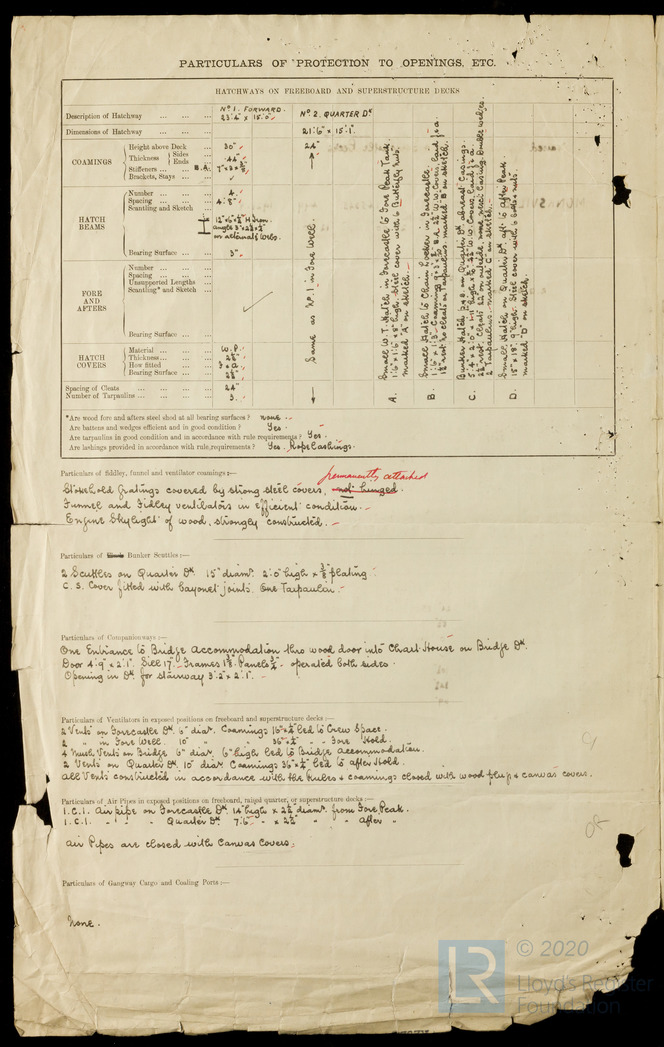 PARTICULARS OF PROTECTION TO OPENINGS, ETC.
HATCHWAYS ON FREEBOARD AND SUPERSTRUCTURE DECKS
Description of Hatchway ... ... ... Nº 1. FORWARD. 23'.4" x 15'.0" Nº 2. QUARTER Dᴷ
Dimensions of Hatchway ... ... ... 21'.6" x 15'.1".
COAMINGS
Height above Deck ... 30" 24"
Thickness { Sides Ends .44"
Stiffeners ... ... B.A.
Brackets, Stays ... ...
HATCH BEAMS
Number ... ... ... 4.
Spacing ... ... ... 4'.8"
Scantling and Sketch ...
Bearing Surface ... ... 3"
Same as Nº 1 in Fore Well.
FORE AND AFTERS
Number ... ... ...
Spacing ... ... ...
Unsupported Lengths
Scantling* and Sketch ...
Bearing Surface ... ...
HATCH COVERS
Material ... ... ... W.P.
Thickness ... ... ... 2½"
How fitted ... ... F & A
Bearing Surface ... ...
Spacing of Cleats ... ... ... 24"
Number of Tarpaulins ... ... ... 3.
A. Small W.T. Hatch in Forecastle to Fore Peak Tank.
1'.6" x 1'.6" x 8" high. Steel cover with 6 Butterfly nuts.
marked "A" on sketch.
B. Small Hatch to Chain Locker in Forecastle
marked "B" on sketch.
C. Bunker Hatch P & S. on Quarter Dᴷ abreast Casings.
2 Tarpaulins. marked "C" on sketch.
D. Small Hatch on Quarter Dᴷ aft to After Peak
15" x 19" 9" high. Steel cover with 6 bolts & nuts.
marked "D" on sketch.
*Are wood fore and afters steel shod at all bearing surfaces ? none.
Are battens and wedges efficient and in good condition ? Yes.
Are tarpaulins in good condition and in accordance with rule requirements ? Yes.
Are lashings provided in accordance with rule requirements ? Yes. Rope Lashings.
Particulars of fiddley, funnel and ventilator coamings :—
permanently attached
Stokehold Gratings covered by strong steel covers, not hinged.
Funnel and Fidley ventilators in efficient condition.
Engine Skylight of wood, strongly constructed.
Particulars of Bunker Scuttles :—
2 Scuttles on Quarter Dᴷ 15" diamʳ. 2'.0" high x ⅜" plating
C.S. Cover fitted with bayonet joints. One Tarpaulin.
Particulars of Companionways :—
One Entrance to Bridge accommodation thro wood door into Chart House on Bridge Dᴷ.
Door 4'.9" x 2'.1". Sill 17". Frames 1⅜". Panels ¾". operated both sides.
Opening in Dᴷ for stairway 3'.2" x 2'.1".
Particulars of Ventilators in exposed positions on freeboard and superstructure decks :—
2 Vents on Forecastle Dᴷ. 6" diaʳ. Coamings 16" x ¼" led to Crew Space.
2 " in Fore Well. 10" " " 36" x ¼" " Fore Hold.
4 Mush Vents on Bridge 6" diaʳ. 6" high led to Bridge accommodation.
2 Vents on Quarter Dᴷ. 10" diaʳ Coamings 36" x ¼" led to after Hold.
All Vents constructed in accordance with the Rules & coamings closed with wood plug & canvas covers.
Particulars of Air Pipes in exposed positions on freeboard, raised quarter, or superstructure decks :—
1. C.I. Air pipe on Forecastle Dᴷ. 14" high x 2½" diamʳ. from Fore Peak.
1. C.I. " " " Quarter Dᴷ 7'.6" " x 2½" " " After "
Air Pipes are closed with Canvas Covers.
Particulars of Gangway Cargo and Coaling Ports :—
None.
LR © 2020
Lloyd's Register
Foundation